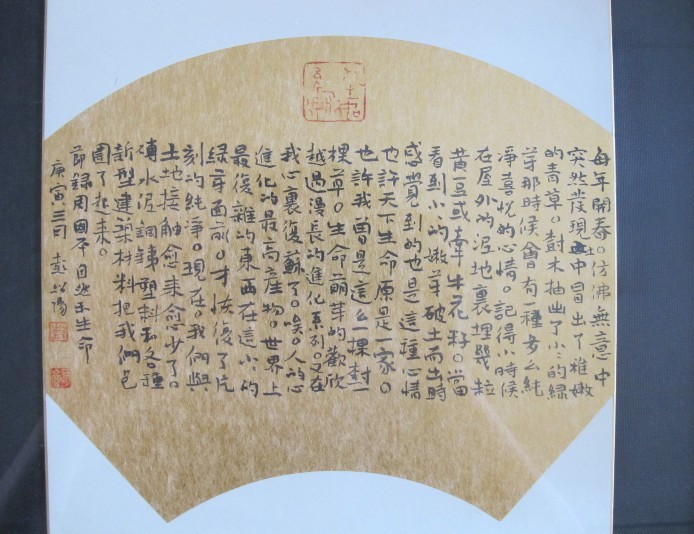 每年開春。仿佛無意中
突然發現土中冒出了稚嫩
的青草。樹木抽出了小小的綠
芽那時候會有一種多么純
凈喜悅的心情。記得小時候
在屋外的泥地裏埋幾粒
黄豆或牽牛花籽。當
看到小小的嫩芽破土而出時
感覺到的也是這種心情
也許天下生命原是一家。
也許我曾是這么一棵樹一
棵草。生命萌芽的歡欣
越過漫長的進化系列。又在
我心裏復蘇了。唉。人的心
進化的最高産物。世界上
最復雜的東西在這小小的
綠芽面前。才恢復了片
刻的純淨。現在。我們與
土地接觸愈來愈少了。
磚水泥鋼鐵塑料和各種
新型建築材料把我們包
圍了起來。
節録周國平自然生命
庚寅三月